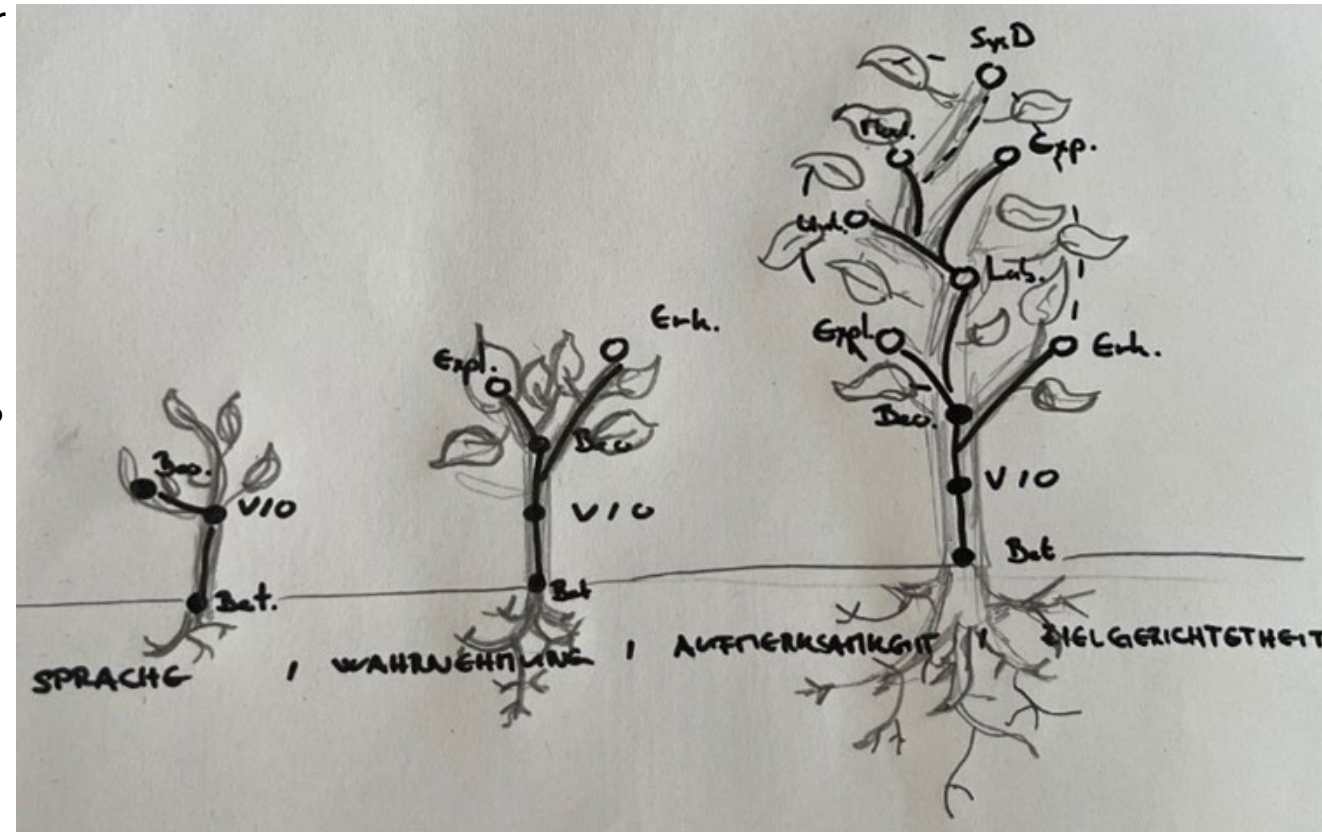 Beo.
V/O
Bet.
Expl.
Erk.
Beo
V/O
Bet
SysD
Mod.
Exp.
Lab.
Expl.
Erk.
Beo.
V/O
Bet
SPRACHE , WAHRNEHMUNG , AUFMERKSAMKEIT , ZIELGERICHTETHEIT